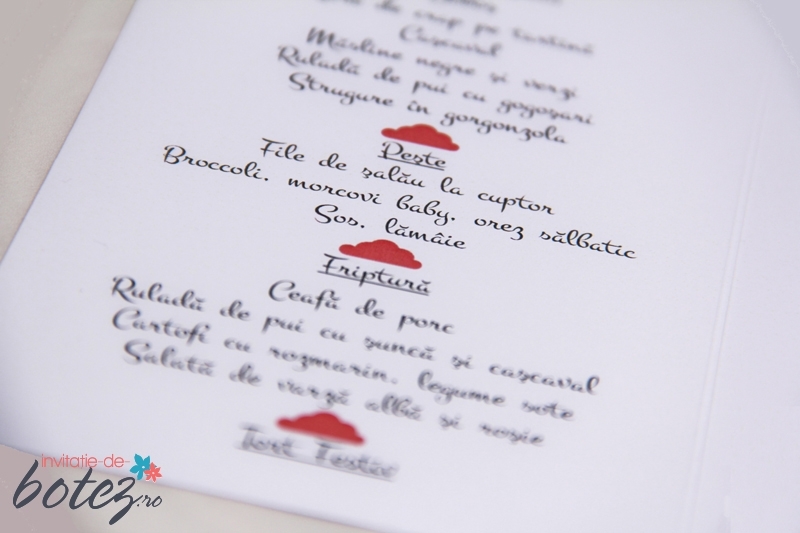 de crap pe tartină
Cașcaval
Măsline negre și verzi
Ruladă de pui cu gogoșari
Strugure în gorgonzola
Pește
File de șalău la cuptor
Broccoli, morcovi baby, orez sălbatic
Sos, lămâie
Friptură
Ceafă de porc
Ruladă de pui cu șuncă și cașcaval
Cartofi cu rozmarin, legume sote
Salată de varză albă și roșie
Tort Festiv
invitatie-de-
botez.ro